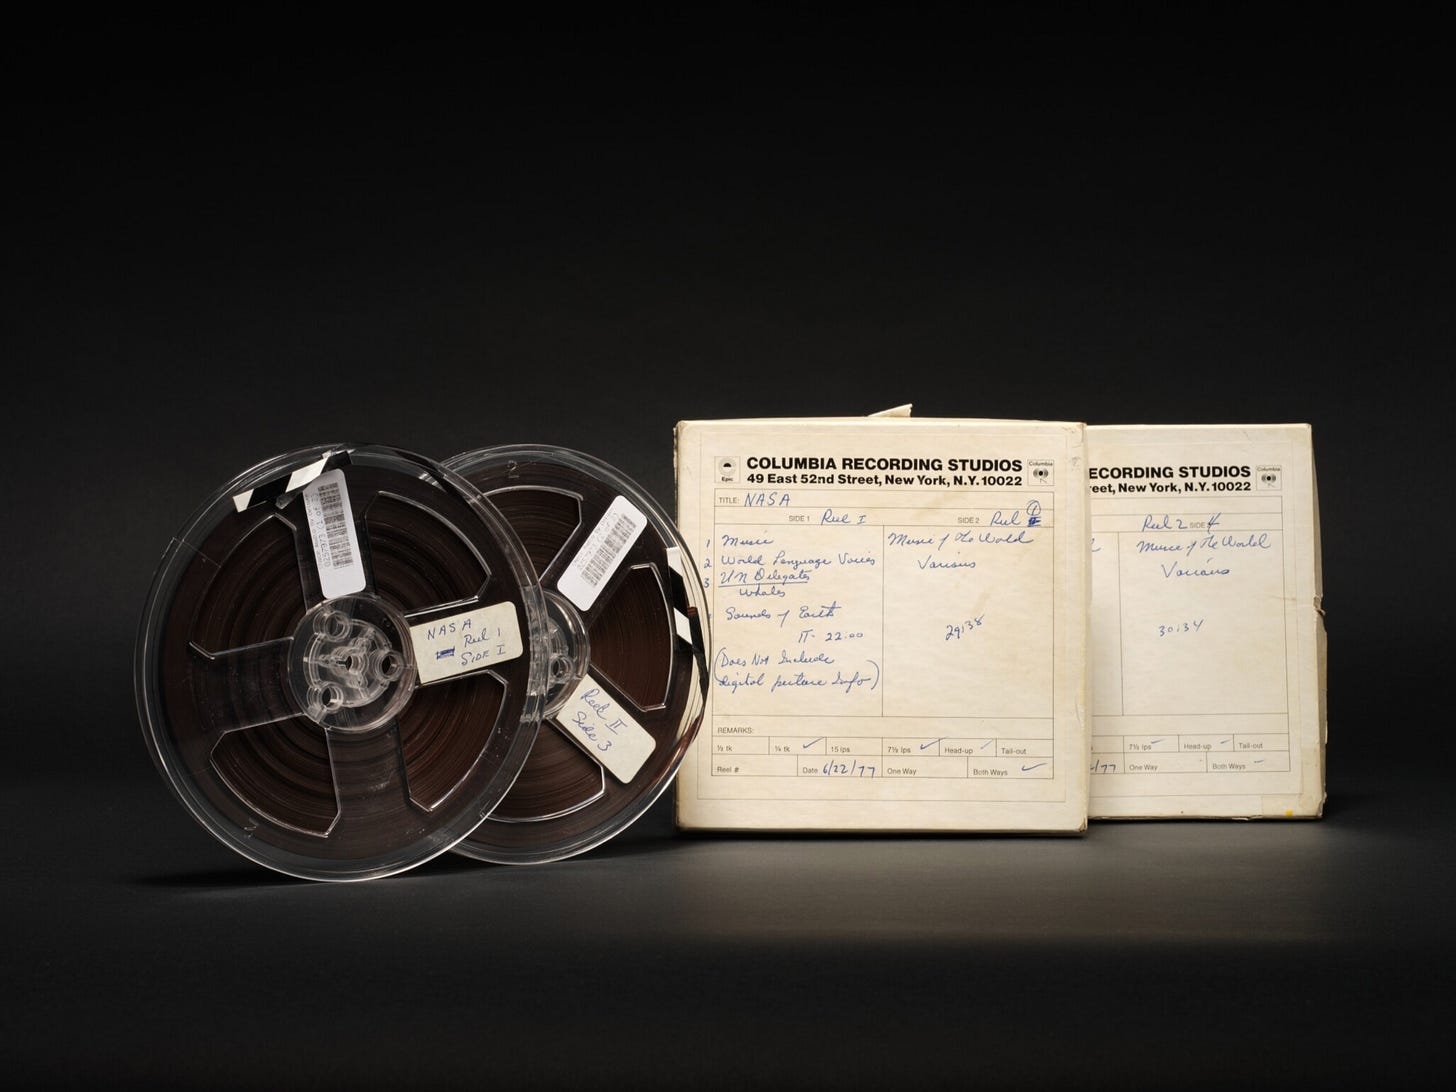 2
NASA
Reel 1
SIDE I
2
Reel II
Side 3
Epic
COLUMBIA RECORDING STUDIOS
49 East 52nd Street, New York, N.Y. 10022
Columbia
TITLE: NASA
SIDE 1 Reel I
SIDE 2 Reel 1
1 Music
2 World Language Voices
3 UN Delegates
Whales
Sounds of Earth
TT- 22:00
(Does Not Include
digital picture Info)
Music of the World
Various
29:38
REMARKS:
½ tk ¼ tk ✓ 15 ips 7½ ips ✓ Head-up ✓ Tail-out
Reel # Date 6/22/77 One Way Both Ways ✓
ECORDING STUDIOS
reet, New York, N.Y. 10022
Columbia
Reel 2 SIDE 4
Music of the World
Various
30:34
7½ ips Head-up Tail-out
/77 One Way Both Ways